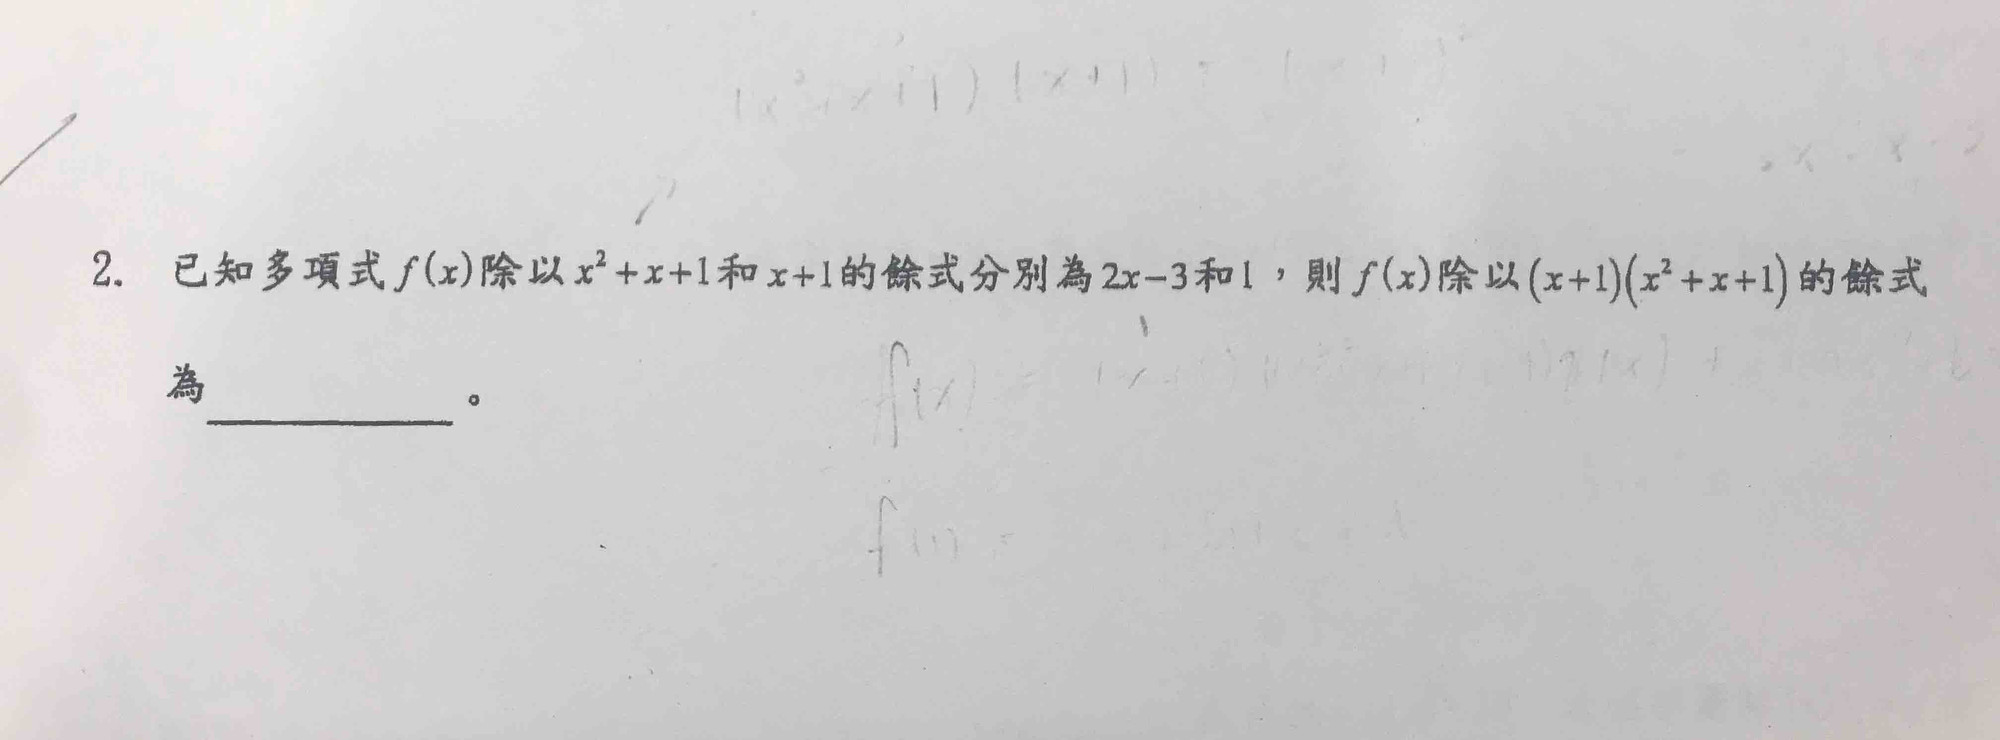 (x²+x+1)(x+1) =
2. 已知多項式 f(x)除以 x²+x+1和 x+1的餘式分別為 2x−3和1，則 f(x)除以(x+1)(x²+x+1)的餘式
為__________。
f(x) =
f(1) =